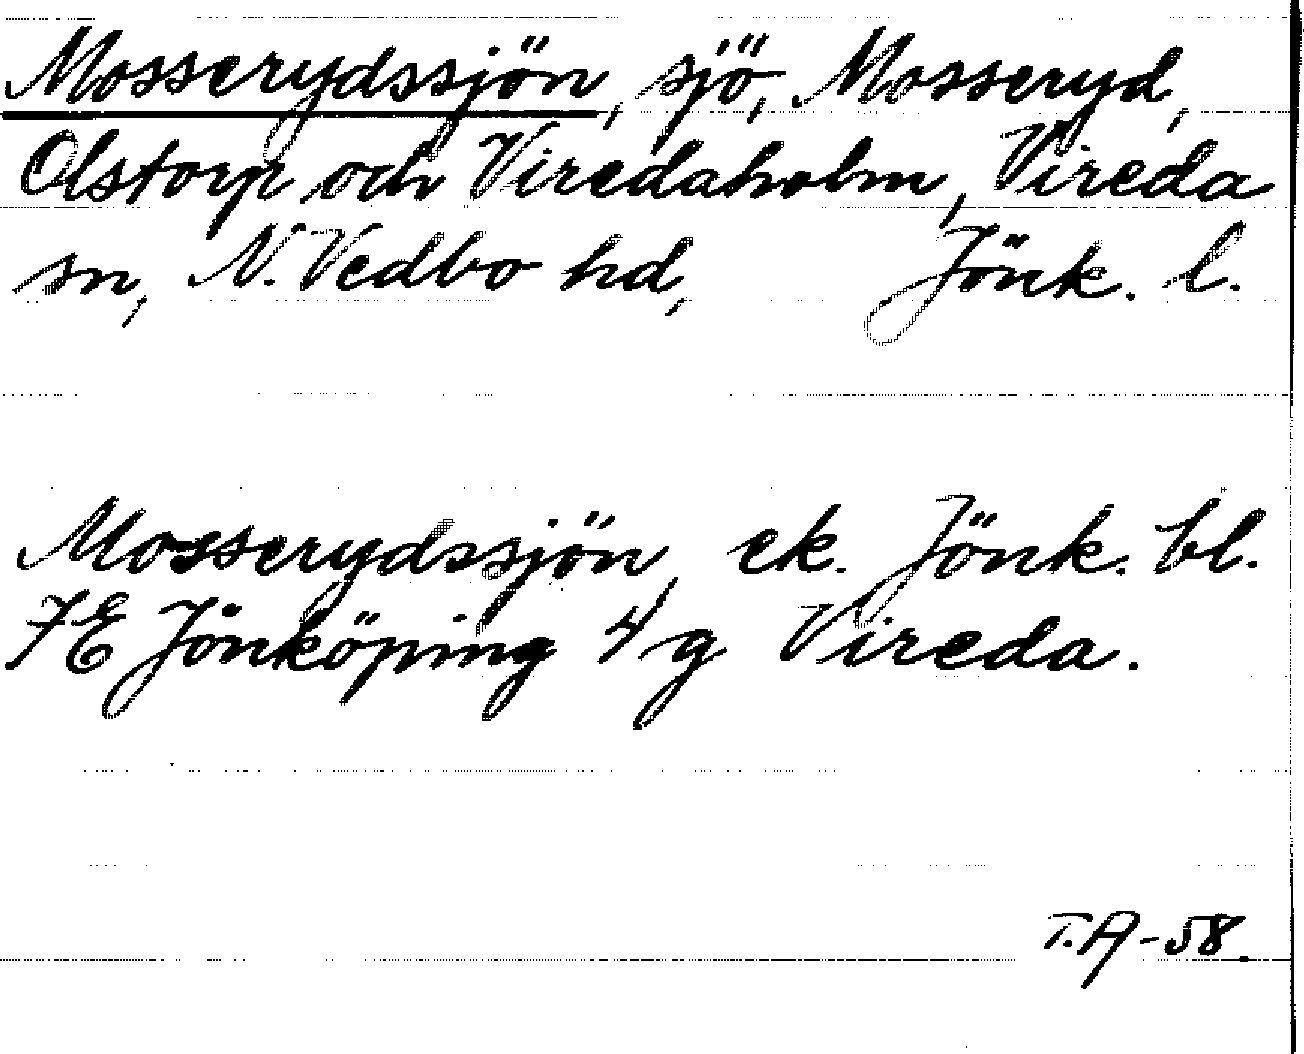 Mosserydssjön, sjö, Mosseryd,
Olstorp och Viredaholm, Vireda
sn, N. Vedbo hd, Jönk. l.
Mosserydssjön, ek. Jönk. bl.
7E Jönköping 4g Vireda.
T.A-58.